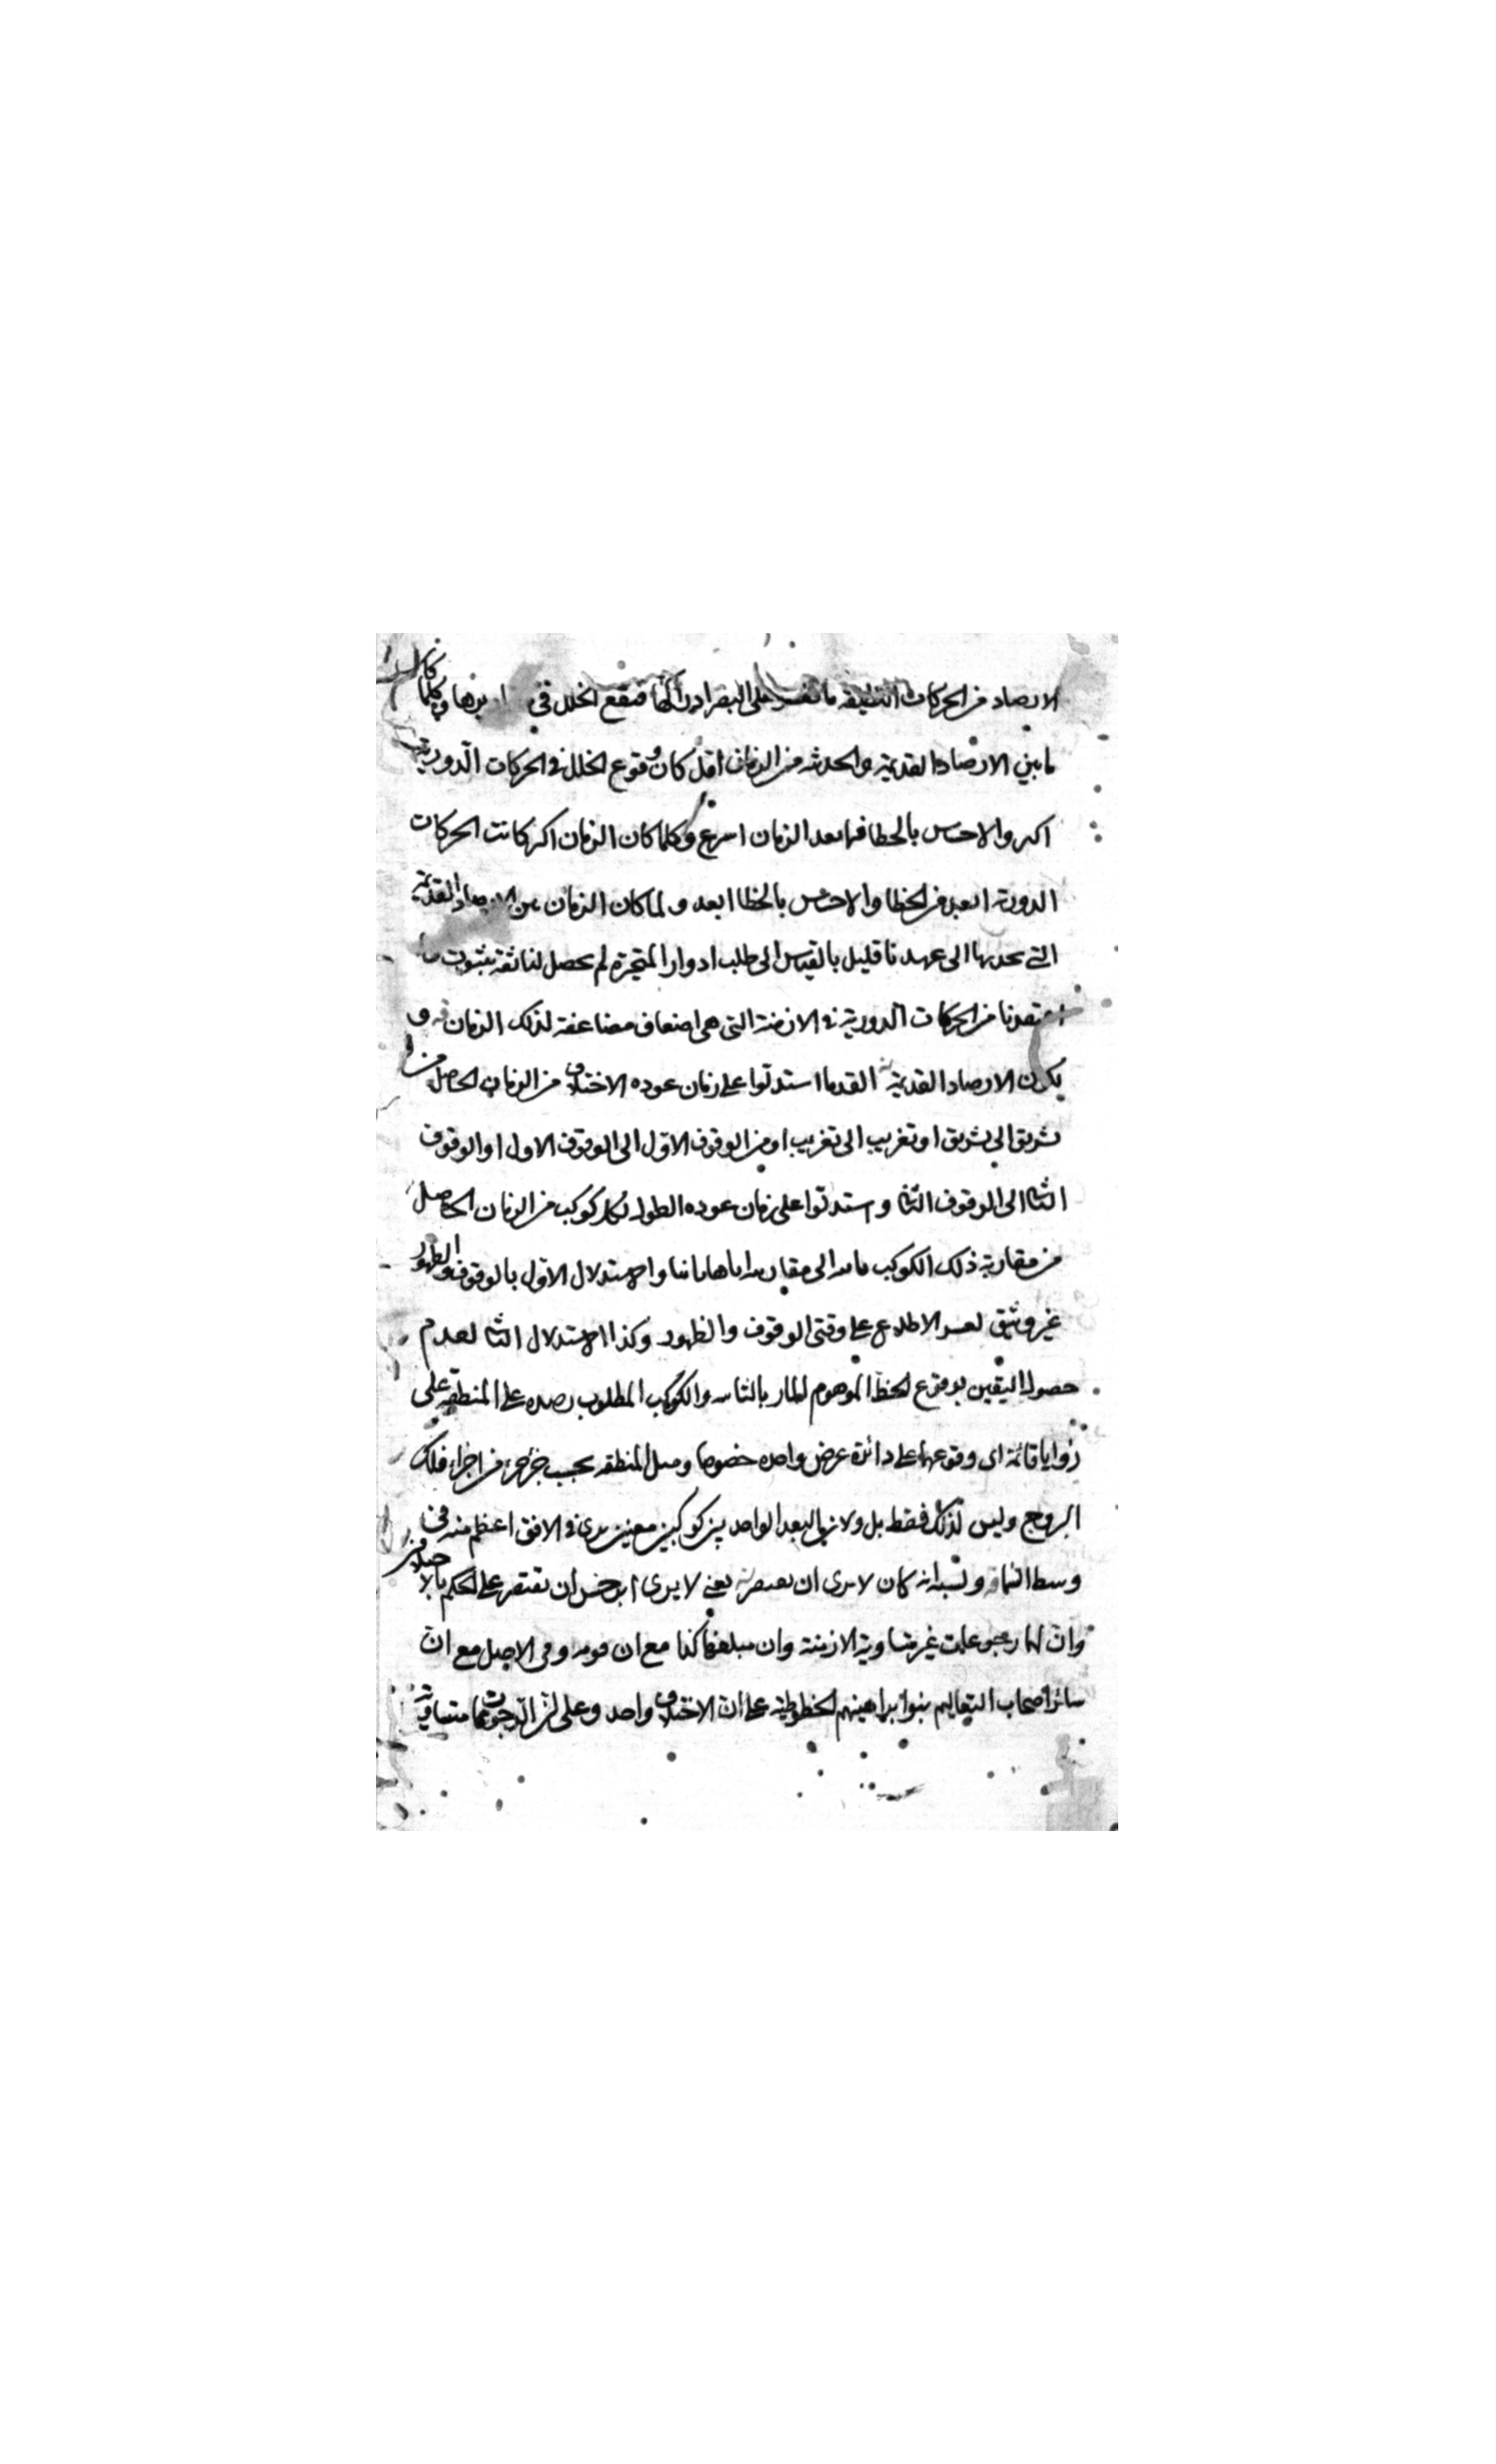 الارصاد من الحركات على البصر ادراكها فيقع الخلل في وكلما كان
ما بين الارصاد القديمة والحدثه من الزمان اقل كان وقوع الخلل في الحركات الدورية
اكبر والاحساس بالخطا بعد الزمان اسرع وكلما كان الزمان اكثر كانت الحركات
الدورية ابعد من الخطا والاحساس بالخطا ابعد ولما كان الزمان بين الارصاد القديمة
التي الى عهدنا قليل بالقياس الى طلب ادوار المتحيرة لم يحصل لنا ثقة بثبوت ما
من الحركات الدورية في الازمنة التي هي اضعاف مضاعفة لذلك الزمان
الارصاد القديمة القدما استدلوا على زمان عوده الاختلاف من الزمان الحاصل من
تشريق الى تشريق او تغريب الى تغريب او من الوقوف الاول الى الوقوف الاول او الوقوف
الثانى الى الوقوف الثانى واستدلوا على زمان عوده الطول لكل كوكب من الزمان الحاصل
من مقاربة ذلك الكوكب الى ثانيا والاستدلال الاول بالوقوف والظهور
غير وثيق لعسر الاطلاع على وقتى الوقوف والظهور وكذا الاستدلال الثانى لعدم
حصول اليقين بوقوع الخط الموهوم المار والكوكب المطلوب رصده على المنطقة على
زوايا قائمة اى وقوعها على دائرة عرض واحده خصوصا وميل المنطقه بحسب جزء جزء من اجزاء فلك
البروج وليس لذلك فقط بل ولان البعد الواحد بين كوكبين معينين يرى في الافق اعظم منه في
وسط السماء كان لا يرى ان يعنى لا يرى ابرخس ان يقتصر على الحكم
وان لها غير متساوية الازمنة وان مبلغها كذا مع ان مع ان
سائر اصحاب التعاليم بنوا براهينهم الخطوطية على ان الاختلاف واحد وعلى ان الرجوعات متساوية